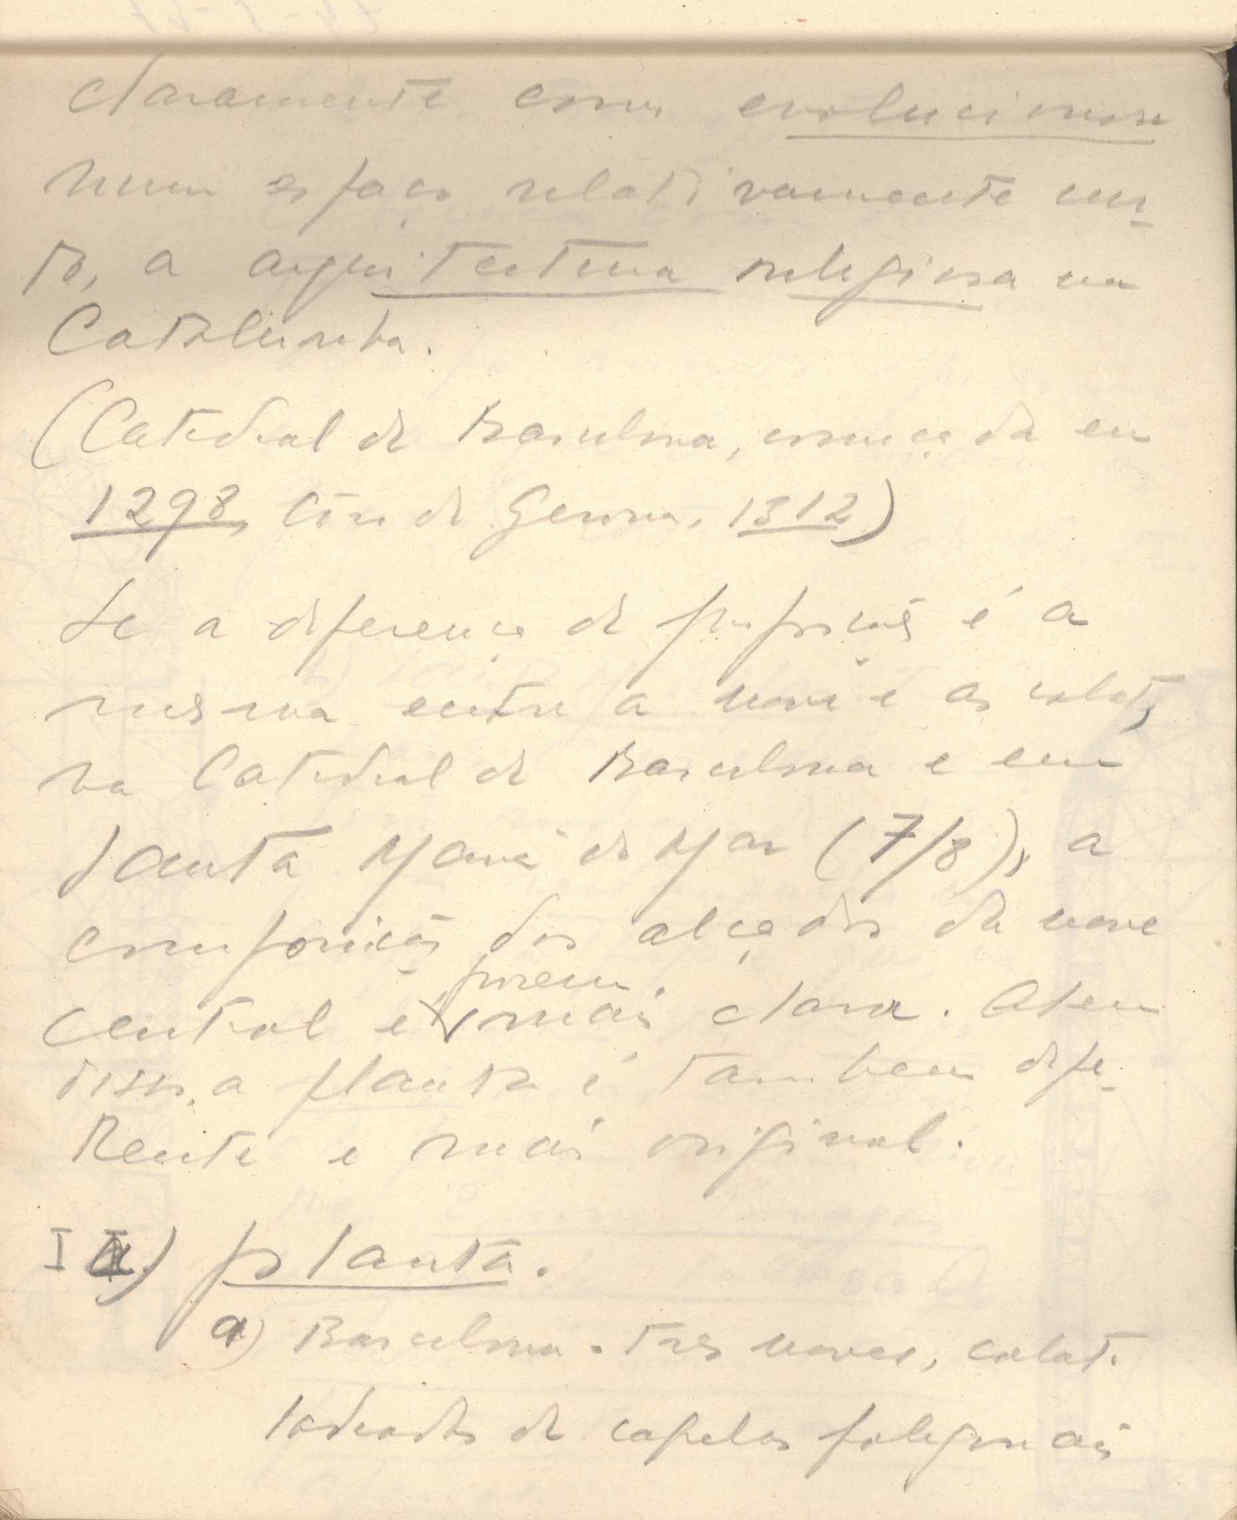 claramente como evolucionou
num espaço relativamente cur-
to, a arquitectura religiosa na
Catalunha.
(Catedral de Barcelona, começada em
1298, de Gerona, 1312)
Se a diferença de proporções é a
mesma entre a nave e as colat.,
na Catedral de Barcelona e em
Santa Maria do Mar (7/8), a
composição dos alçados da nave
porem
central é mais clara. Alem
disso, a planta é tambem dife-
rente e mais original.
II) planta.
a) Barcelona. tres naves, colat.
ladeadas de capelas poligonais